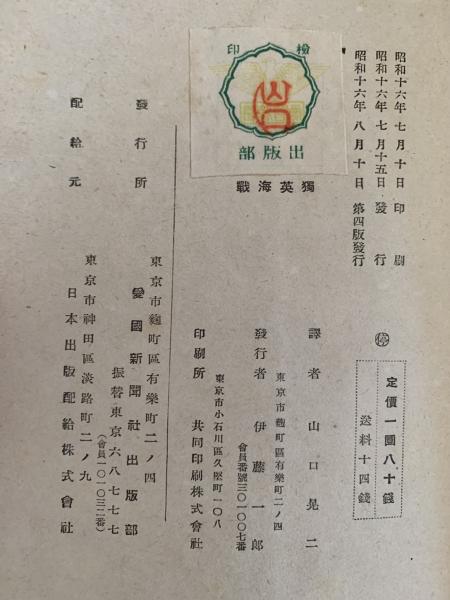 昭和十六年七月十日印刷
昭和十六年七月十五日發行
昭和十六年八月十日第四版發行
停
定價一圓八十錢
送料十四錢
檢印
出版部
獨英海戰
譯者 山口晃二
東京市麹町區有樂町二ノ四
會員番號三〇一〇〇七番
發行者 伊藤一郎
東京市小石川區久堅町一〇八
印刷所 共同印刷株式會社
發行所
東京市麹町區有樂町二ノ四
愛國新聞社出版部
振替東京六八七七七
(會員一〇一〇三二番)
配給元
東京市神田區淡路町二ノ九
日本出版配給株式會社